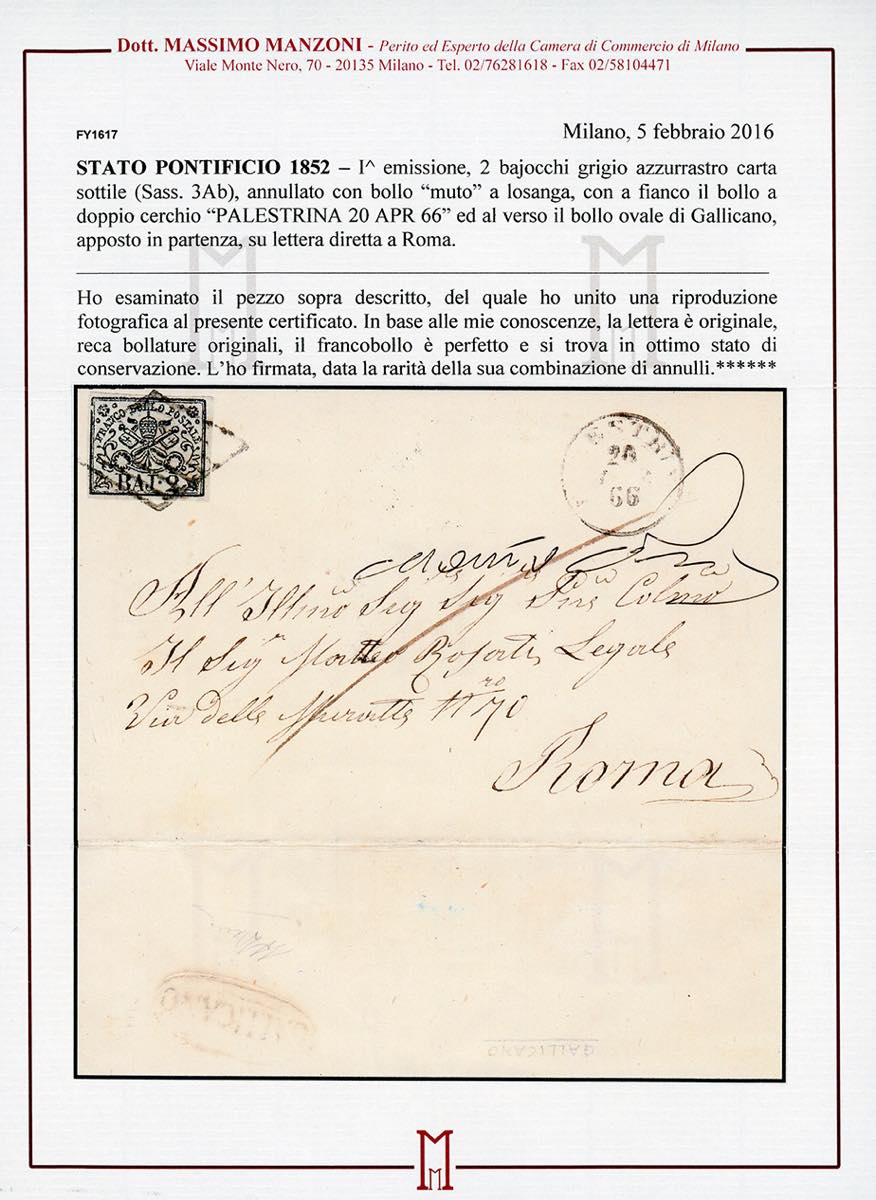 Dott. MASSIMO MANZONI - Perito ed Esperto della Camera di Commercio di Milano
Viale Monte Nero, 70 - 20135 Milano - Tel. 02/76281618 - Fax 02/58104471
FY1617
Milano, 5 febbraio 2016
STATO PONTIFICIO 1852 – I^ emissione, 2 bajocchi grigio azzurrastro carta
sottile (Sass. 3Ab), annullato con bollo “muto” a losanga, con a fianco il bollo a
doppio cerchio “PALESTRINA 20 APR 66” ed al verso il bollo ovale di Gallicano,
apposto in partenza, su lettera diretta a Roma.
Ho esaminato il pezzo sopra descritto, del quale ho unito una riproduzione
fotografica al presente certificato. In base alle mie conoscenze, la lettera è originale,
reca bollature originali, il francobollo è perfetto e si trova in ottimo stato di
conservazione. L’ho firmata, data la rarità della sua combinazione di annulli.******
FRANCO BOLLO POSTALE
BAJ. 2
ESTRI
20
66
All' Illmo Sig Sig Colmo
Il Sigr Matteo Legale
Via delle Muratte No 70
Roma
GALLICANO
M